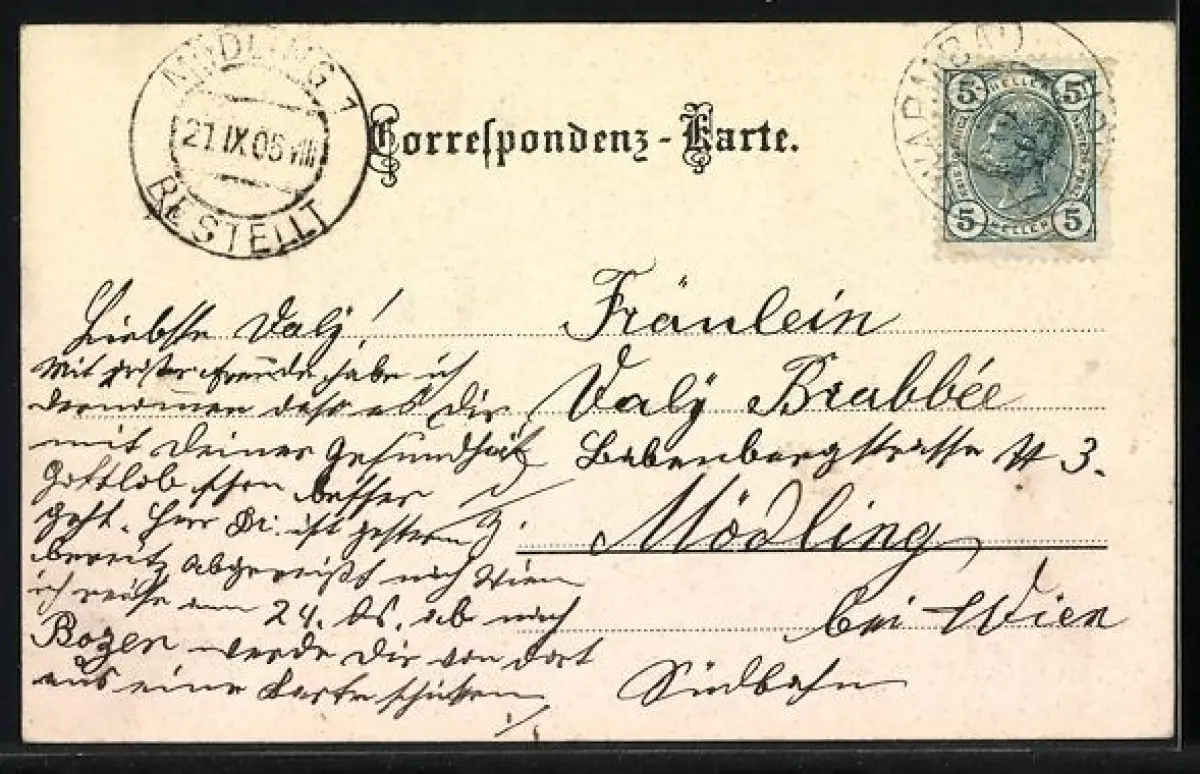 MÖDLING 1
21 IX 05 VIII
BESTELLT
Correspondenz-Karte.
5 5
HELLER
5 5
HELLER
Liebste Valý!
Mit Freude habe ich
vernommen dass es Dir
mit Deiner Gesundheit
Gottlob schon besser
geht. Herr Dr. ist gestern
bereits abgereist nach Wien
ich reise am 24. ds. ab nach
Bozen werde Dir von dort
aus eine Karte schicken
Fräulein
Valý Brabbée
Babenbergstrasse № 3.
Mödling
bei Wien
Südbahn